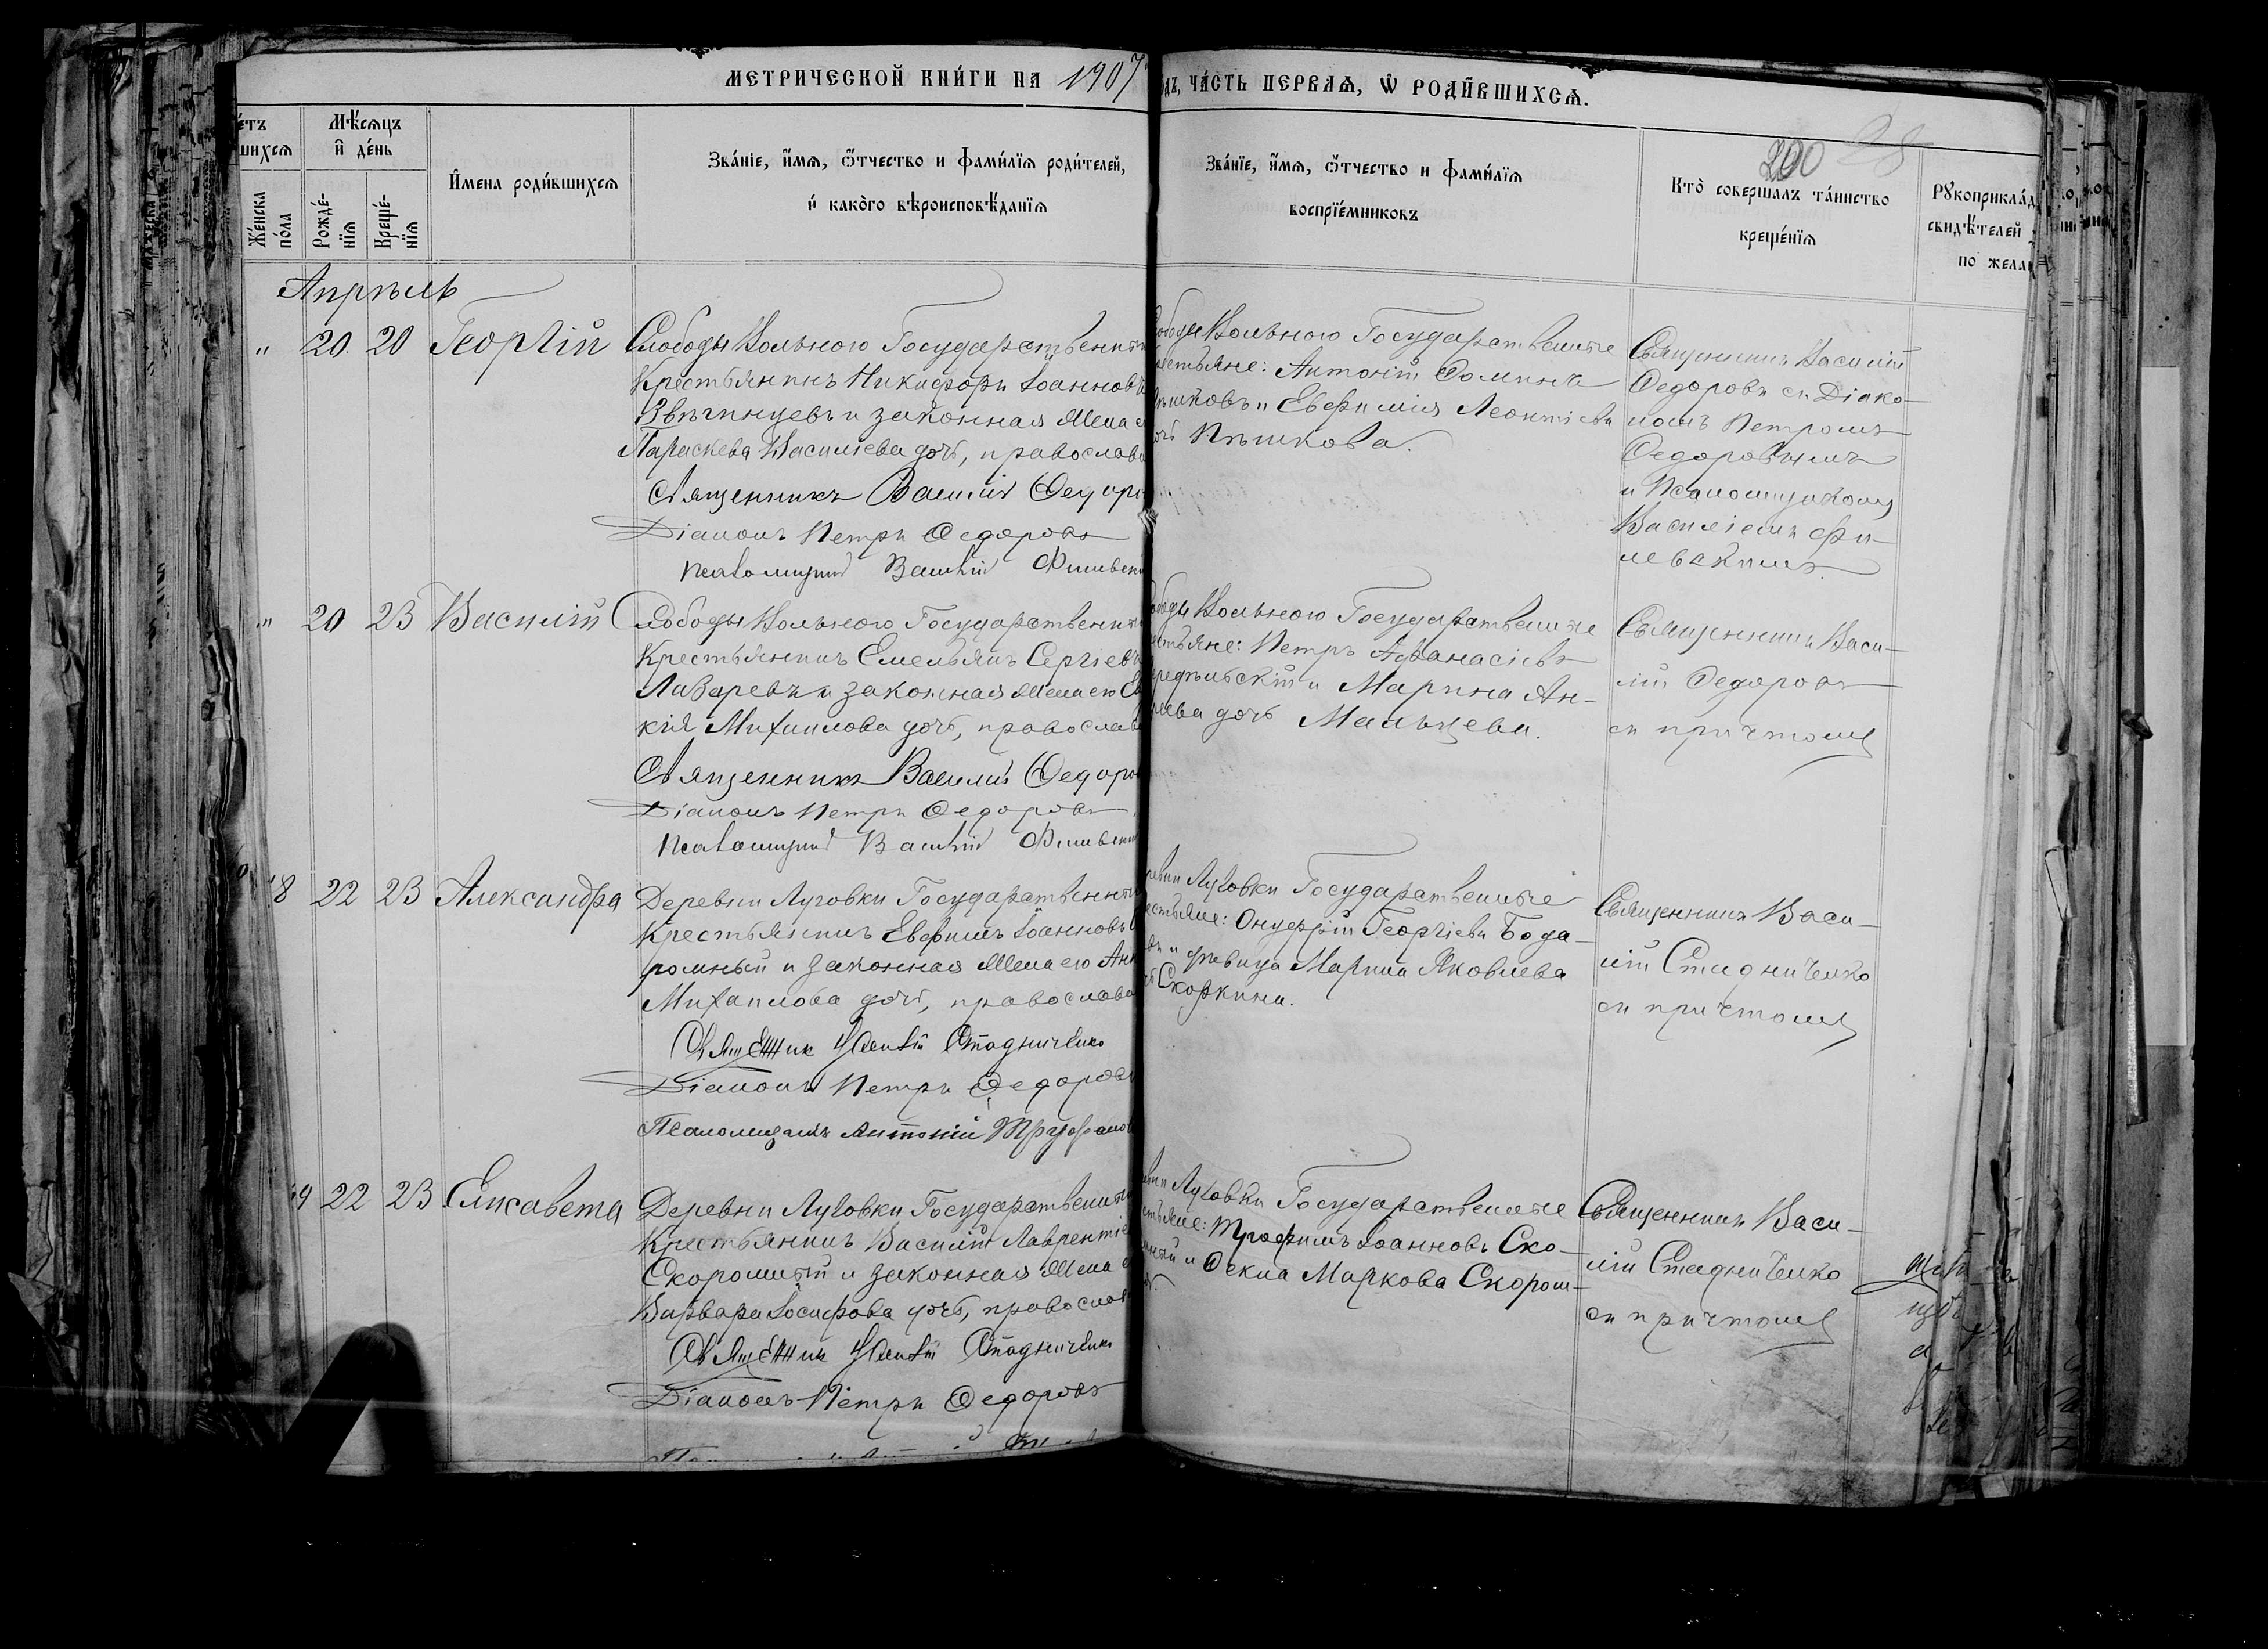 МЕТРИЧЕСКОЙ КНИ́ГИ НА 1907
ЧА́СТЬ ПЕРВАѦ, Ѡ РОДИ́ВШИХСѦ.
Мѣ́сѧцъ
и҆ де́нь
Же́нска
по́ла
Рожде́-
нїѧ
Креще́-
нїѧ
И҆мена роди́вшихсѧ
Зва́нїе, и҆́мѧ, ѻ҆́тчество и фами́лїѧ роди́телей,
и҆ како́го вѣроисповѣ́данїѧ
Зва́нїе, и҆́мѧ, ѻ҆́тчество и фами́лїѧ
воспрїе́мниковъ
200
Кто̀ соверша́лъ та́инство
креще́нїѧ
свидѣ́телей
по
Апрѣль
" 20 20 Георгій
Слободы Вольного Государственный
Крестьянинъ Никифоръ Іоанновъ
Звягинцевъ и законная жена
Параскева Василіева дочь, православ
Священникъ Василій Федоро
Діаконъ Петръ Федоровъ
Псаломщикъ Василій Филевск
Вольного Государственные
Антоній Фоминъ
и Евфимія Леонтіева
Пѣшкова.
Священникъ Василій
Федоровъ съ Діако-
номъ Петромъ
Федоровымъ
и Псаломщикомъ
Василіемъ Фи-
левскимъ.
" 20 23 Василій
Слободы Вольного Государственный
Крестьянинъ Емельянъ Сергіевъ
Лазаревъ и законная жена его Ев
кія Михаилова дочь, православ
Священникъ Василій Федоро
Діаконъ Петръ Федоровъ
Псаломщикъ Василій Филевск
Вольного Государственные
Петръ Афанасіевъ
и Марина Ан-
дочь Мальцева.
Священникъ Васи-
лій Федоровъ
съ причтомъ
18 22 23 Александра
Деревни Луговки Государственный
Крестьянинъ Евфимъ Іоанновъ
ромный и законная жена его
Михаилова дочь, православ
Священникъ Василій Стадниченко
Діаконъ Петръ Федоровъ
Псаломщикъ Антоній Труфанов
Луговки Государственные
Онуфрій Георгіевъ Бода-
и девица Марина Яковлева
Скоркина.
Священникъ Васи-
лій Стадниченко
съ причтомъ
19 22 23 Елисавета
Деревни Луговки Государственный
Крестьянинъ Василій Лаврентіев
Скоромный и законная жена
Варвара Іосифова дочь, православ
Священникъ Василій Стадниченко
Діаконъ Петръ Федоровъ
Луговки Государственные
Трофимъ Іоанновъ Ско-
и Фекла Маркова Скором-
Священникъ Васи-
лій Стадниченко
съ причтомъ